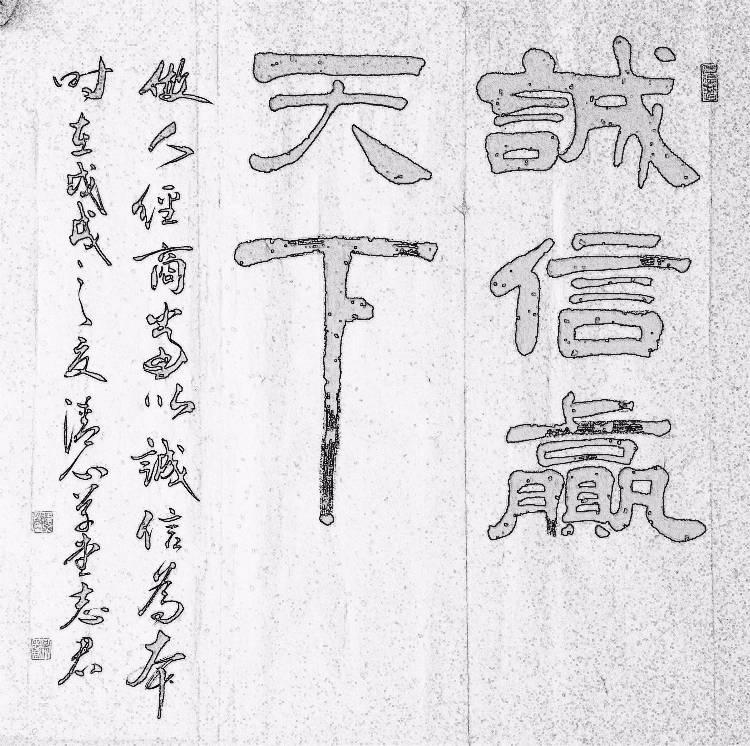 誠信贏
天下
做人經商當以誠信為本
时在戊戌之夏清心草堂志君